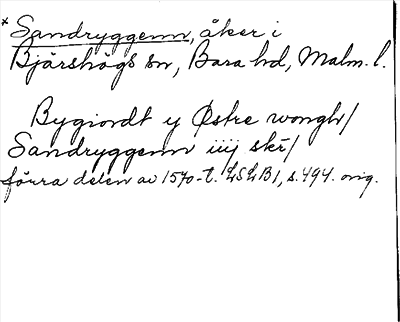 * Sandryggenn, åker i
Bjärshögs sn, Bara hd, Malm. l.
Bygiordt y Østre wongh/
Sandryggenn iiij skr̄/
förra delen av 1570-t. LSLB1, s. 494. orig.